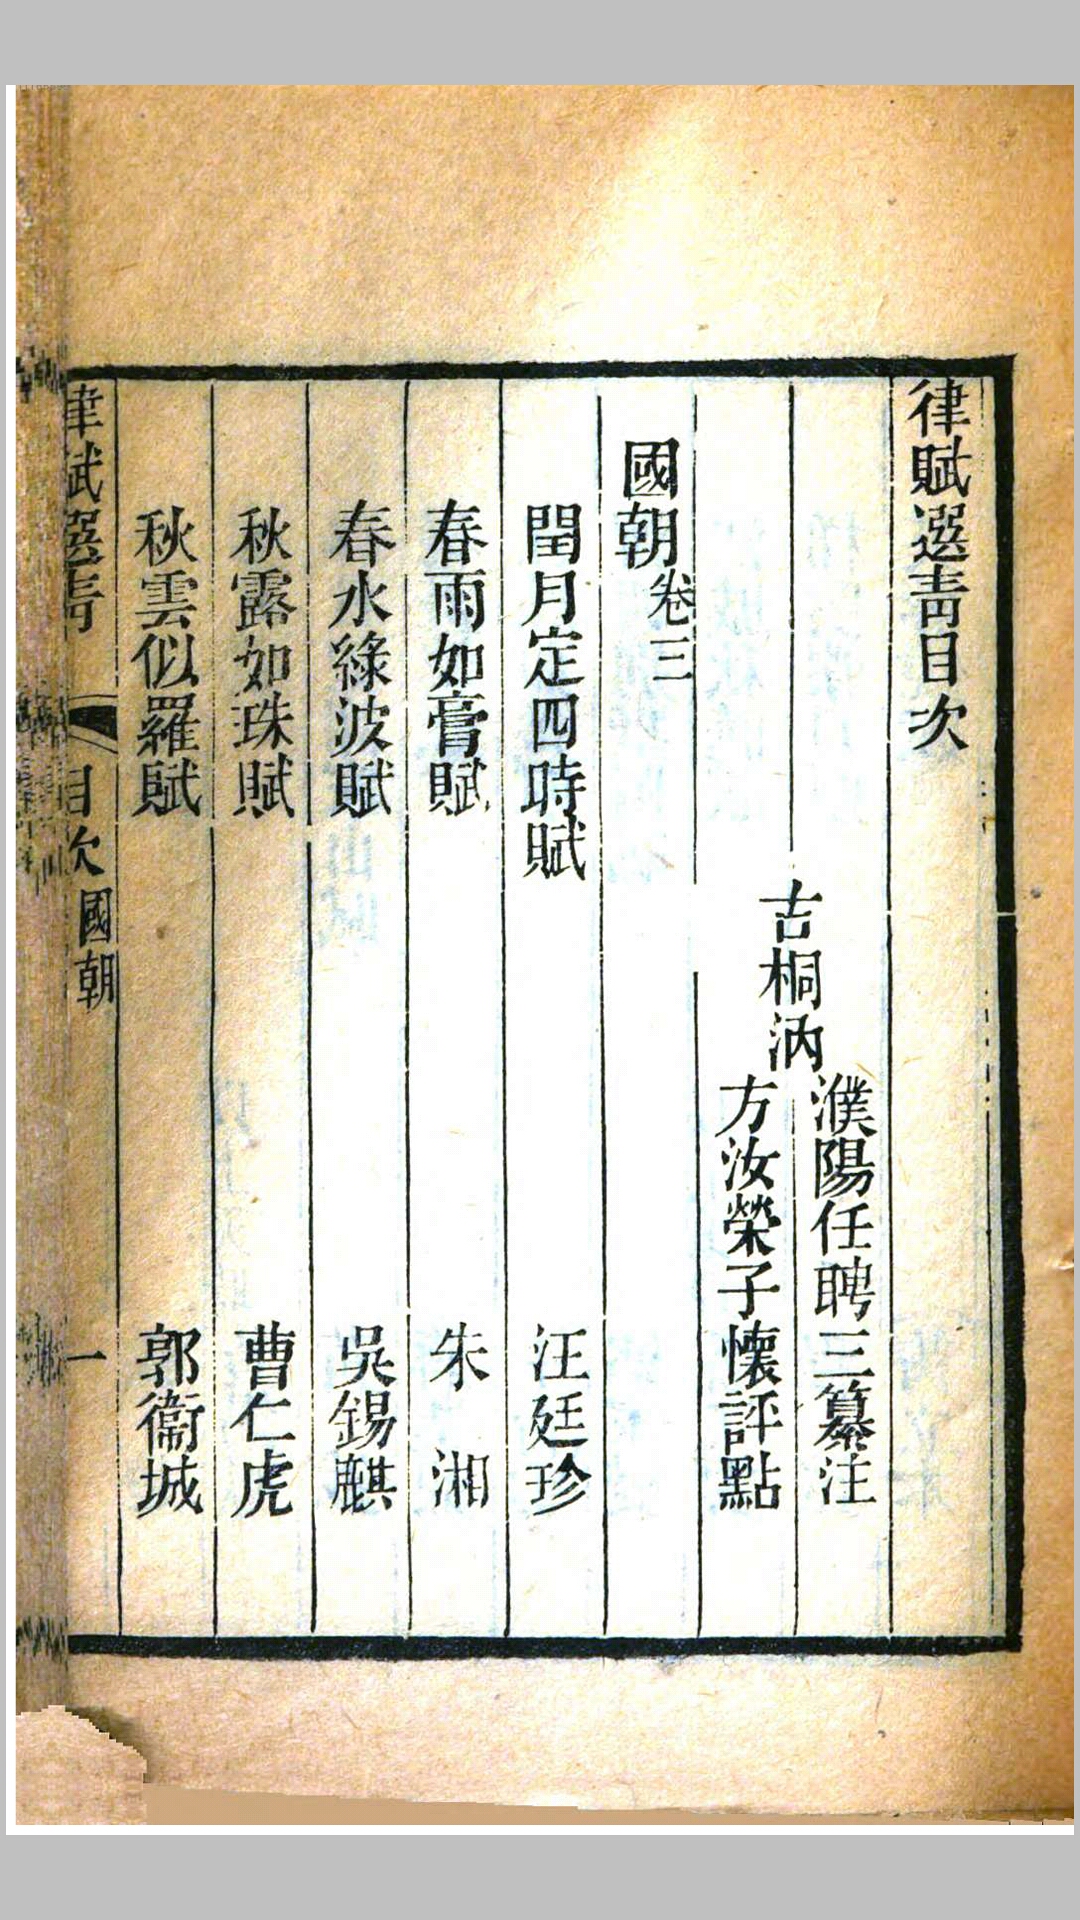 律賦選青目次
吉桐汭
濮陽任聘三纂注
方汝榮子懷評點
國朝卷三
閏月定四時賦 汪廷珍
春雨如膏賦 朱湘
春水綠波賦 吳錫麒
秋露如珠賦 曹仁虎
秋雲似羅賦 郭衞城
律賦選青 目次 國朝 一